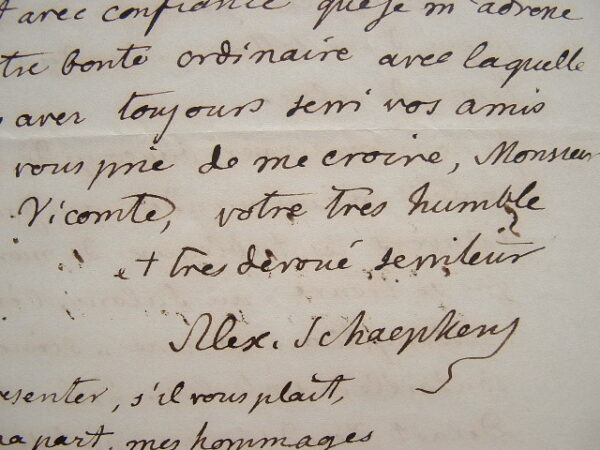 avec confiance que je m'adresse
tre bonté ordinaire avec laquelle
avez toujours servi vos amis
vous prie de me croire, Monsieur
Vicomte, votre tres humble
et tres dévoué serviteur
Alex. Schaepkens
résenter, s'il vous plait,
ma part, mes hommages